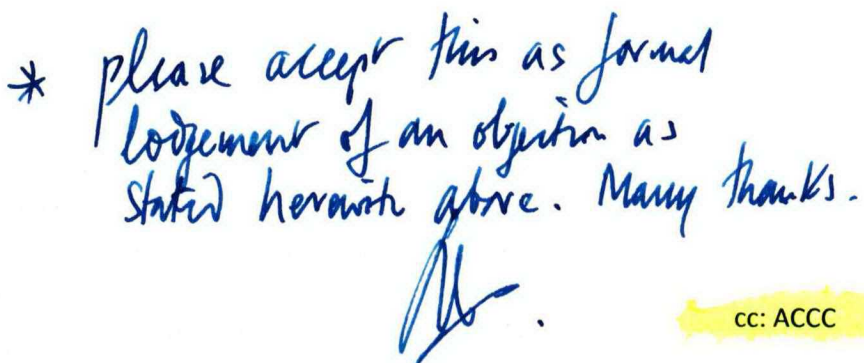 * please accept this as formal
lodgement of an objection as
stated herewith above. Many thanks.
cc: ACCC